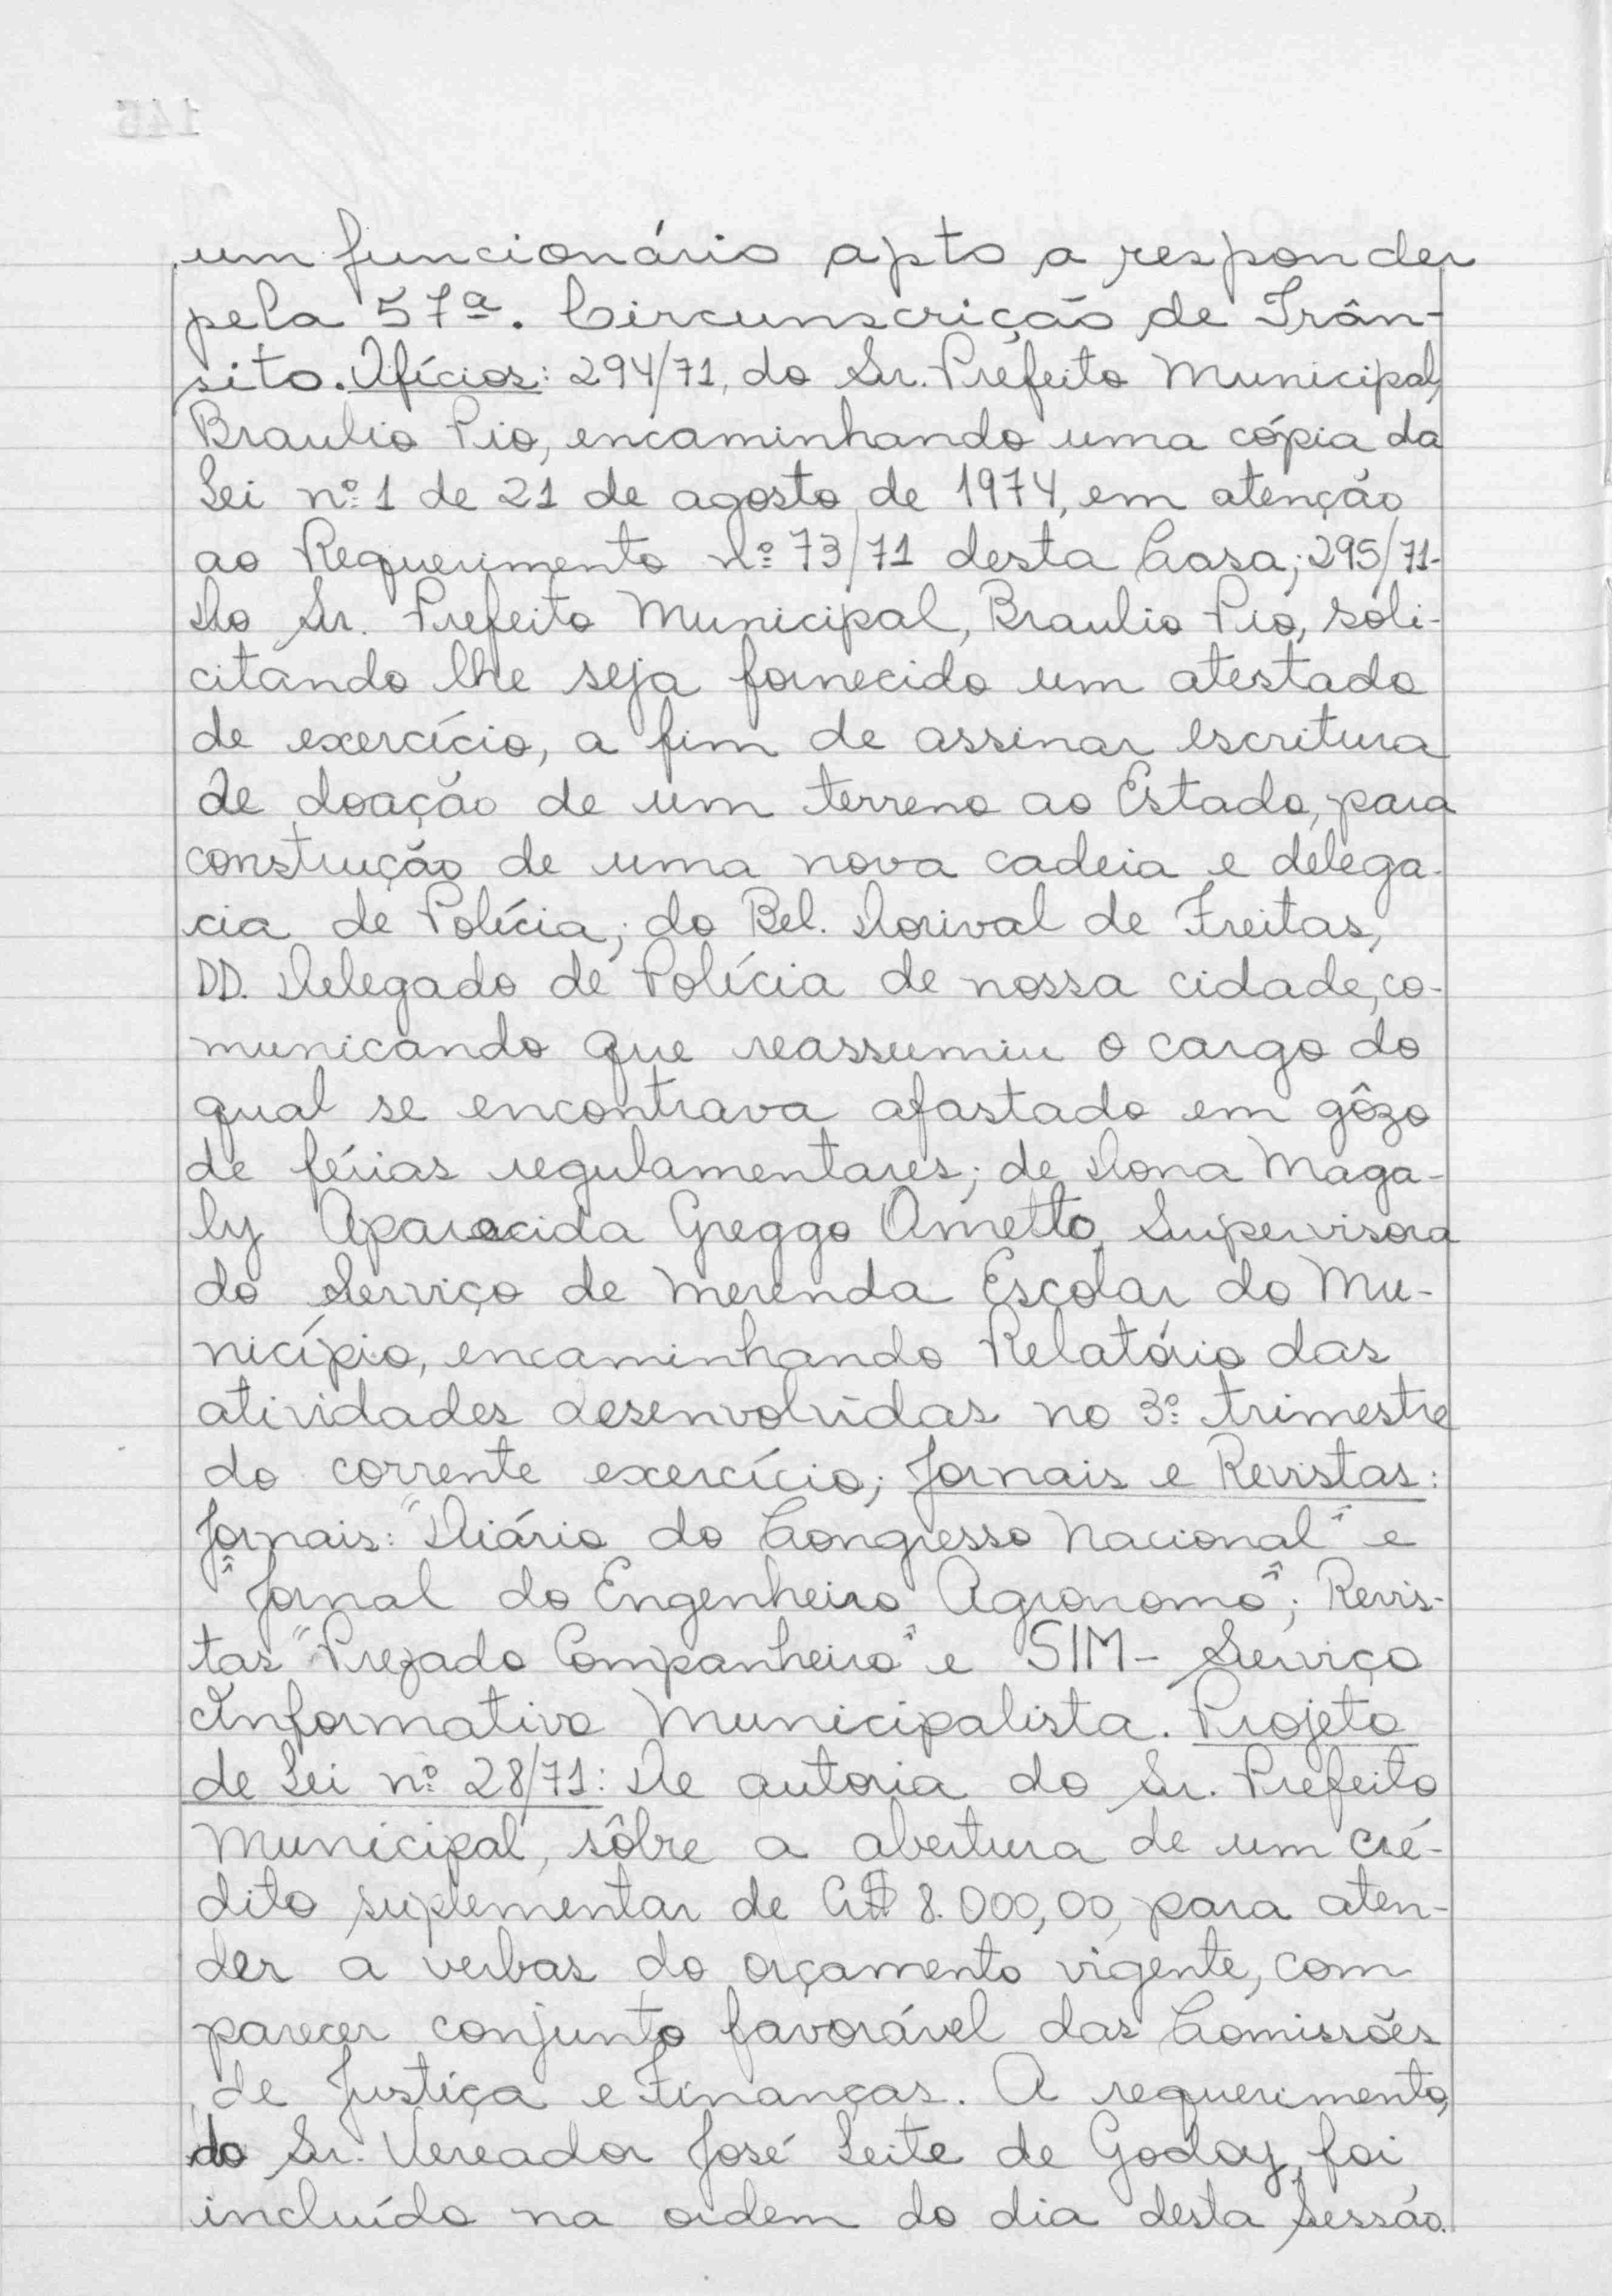 um funcionário apto a responder
pela 57ª. Circunscrição de Trân-
sito. Ofícios: 294/71, do Sr. Prefeito Municipal,
Braulio Pio, encaminhando uma cópia da
Lei nº 1 de 21 de agosto de 1974, em atenção
ao Requerimento nº 73/71 desta Casa; 295/71-
Do Sr. Prefeito Municipal, Braulio Pio, soli-
citando lhe seja fornecido um atestado
de exercício, a fim de assinar escritura
de doação de um terreno ao Estado, para
construção de uma nova cadeia e delega-
cia de Polícia; do Bel. Dorival de Freitas,
DD. Delegado de Polícia de nossa cidade, co-
municando que reassumiu o cargo do
qual se encontrava afastado em gôzo
de férias regulamentares; de Dona Maga-
ly Aparecida Greggo Ometto, Supervisora
do Serviço de Merenda Escolar do Mu-
nicípio, encaminhando Relatório das
atividades desenvolvidas no 3º trimestre
do corrente exercício; Jornais e Revistas:
Jornais: "Diário do Congresso Nacional" e
"Jornal do Engenheiro Agronomo"; Revis-
tas "Prezado Companheiro" e SIM - Serviço
Informativo Municipalista. Projeto
de Lei nº 28/71: De autoria do Sr. Prefeito
Municipal, sôbre a abertura de um cré-
dito suplementar de Cr$ 8.000,00, para aten-
der a verbas do orçamento vigente, com
parecer conjunto favorável das Comissões
de Justiça e Finanças. A requerimento,
do Sr. Vereador José Leite de Godoy, foi
incluído na ordem do dia desta Sessão.
145